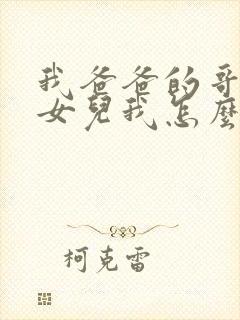 我爸爸的哥
女兒我怎麼
柯克雷